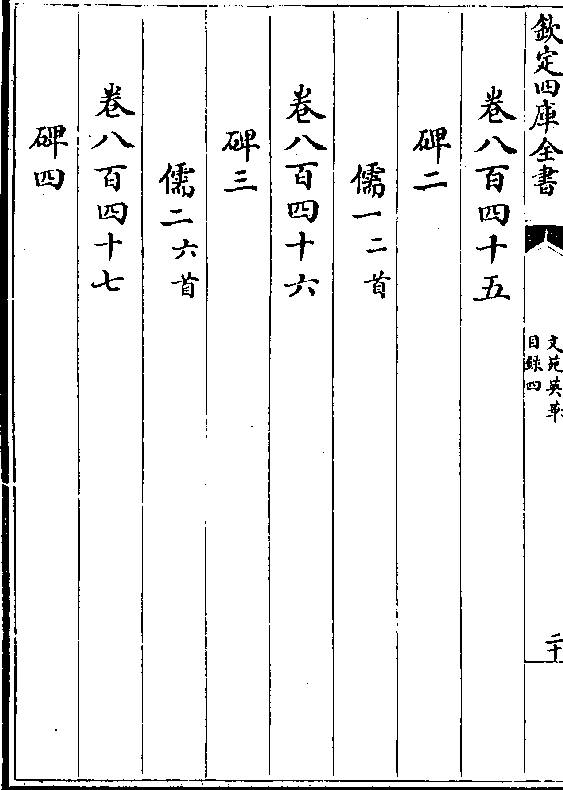 欽定四庫全書
文苑英華
目録四
二十
卷八百四十五
碑二
儒一二首
卷八百四十六
碑三
儒二六首
卷八百四十七
碑四